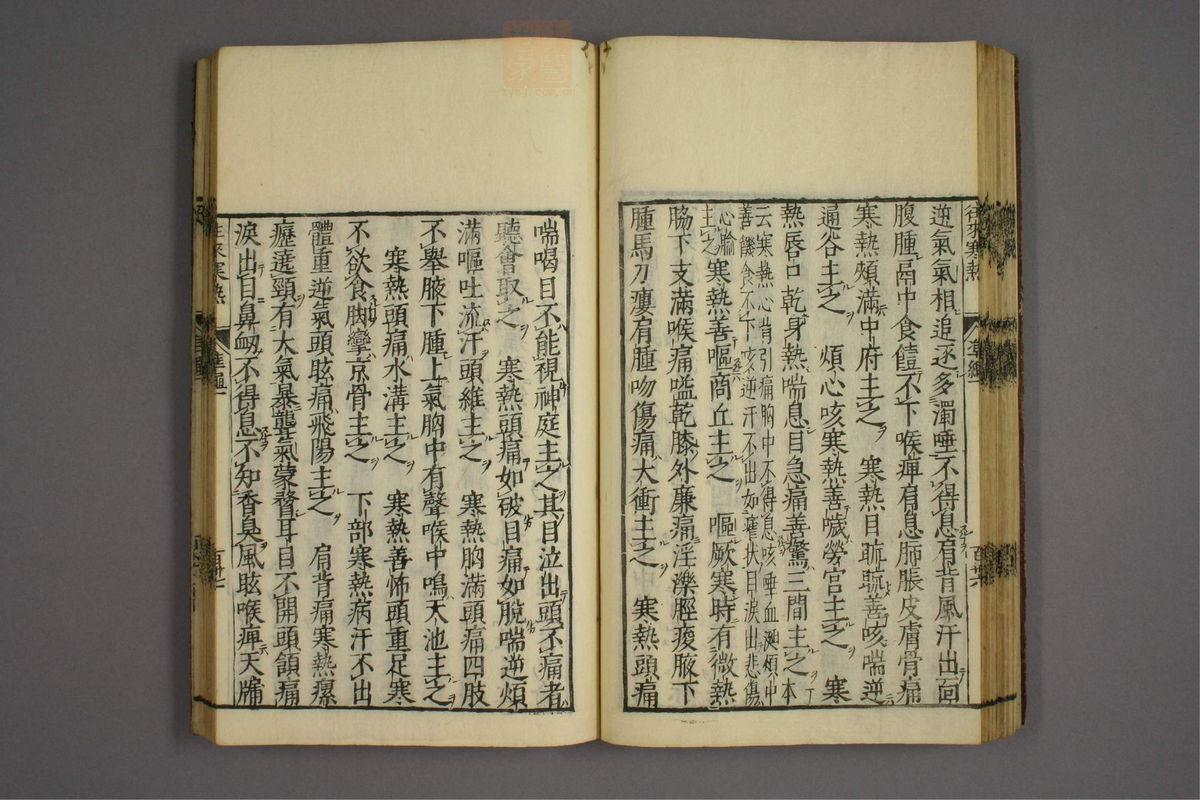 往來寒熱
逆氣氣相追逐多濁唾不得息肩背風汗出面
腹腫鬲中食饐不下喉痺肩息肺脹皮膚骨痛
寒熱煩滿中府主之 寒熱目䀮䀮善咳喘逆
通谷主之 煩心咳寒熱善噦勞宮主之 寒
熱唇口乾身熱喘息目急痛善驚三間主之本
云寒熱心背引痛胸中不得息咳唾血涎煩中
善饑食不下咳逆汗不出如瘧狀目淚出悲傷
心腧
主之
寒熱善嘔商丘主之 嘔厥寒時有微熱
脇下支滿喉痛嗌乾膝外廉痛淫濼脛痠腋下
腫馬刀瘻肩腫吻傷痛大衝主之 寒熱頭痛
喘喝目不能視神庭主之其目泣出頭不痛者
聽會取之 寒熱頭痛如破目痛如脫喘逆煩
滿嘔吐流汗頭維主之 寒熱胸滿頭痛四肢
不舉腋下腫上氣胸中有聲喉中鳴天池主之
寒熱頭痛水溝主之 寒熱善怖頭重足寒
不欲食脚攣京骨主之 下部寒熱病汗不出
體重逆氣頭眩痛飛陽主之 肩背痛寒熱瘰
癧遶頸有大氣暴聾氣蒙瞀耳目不開頭頷痛
淚出目鼻衄不得息不知香臭風眩喉痺天牖